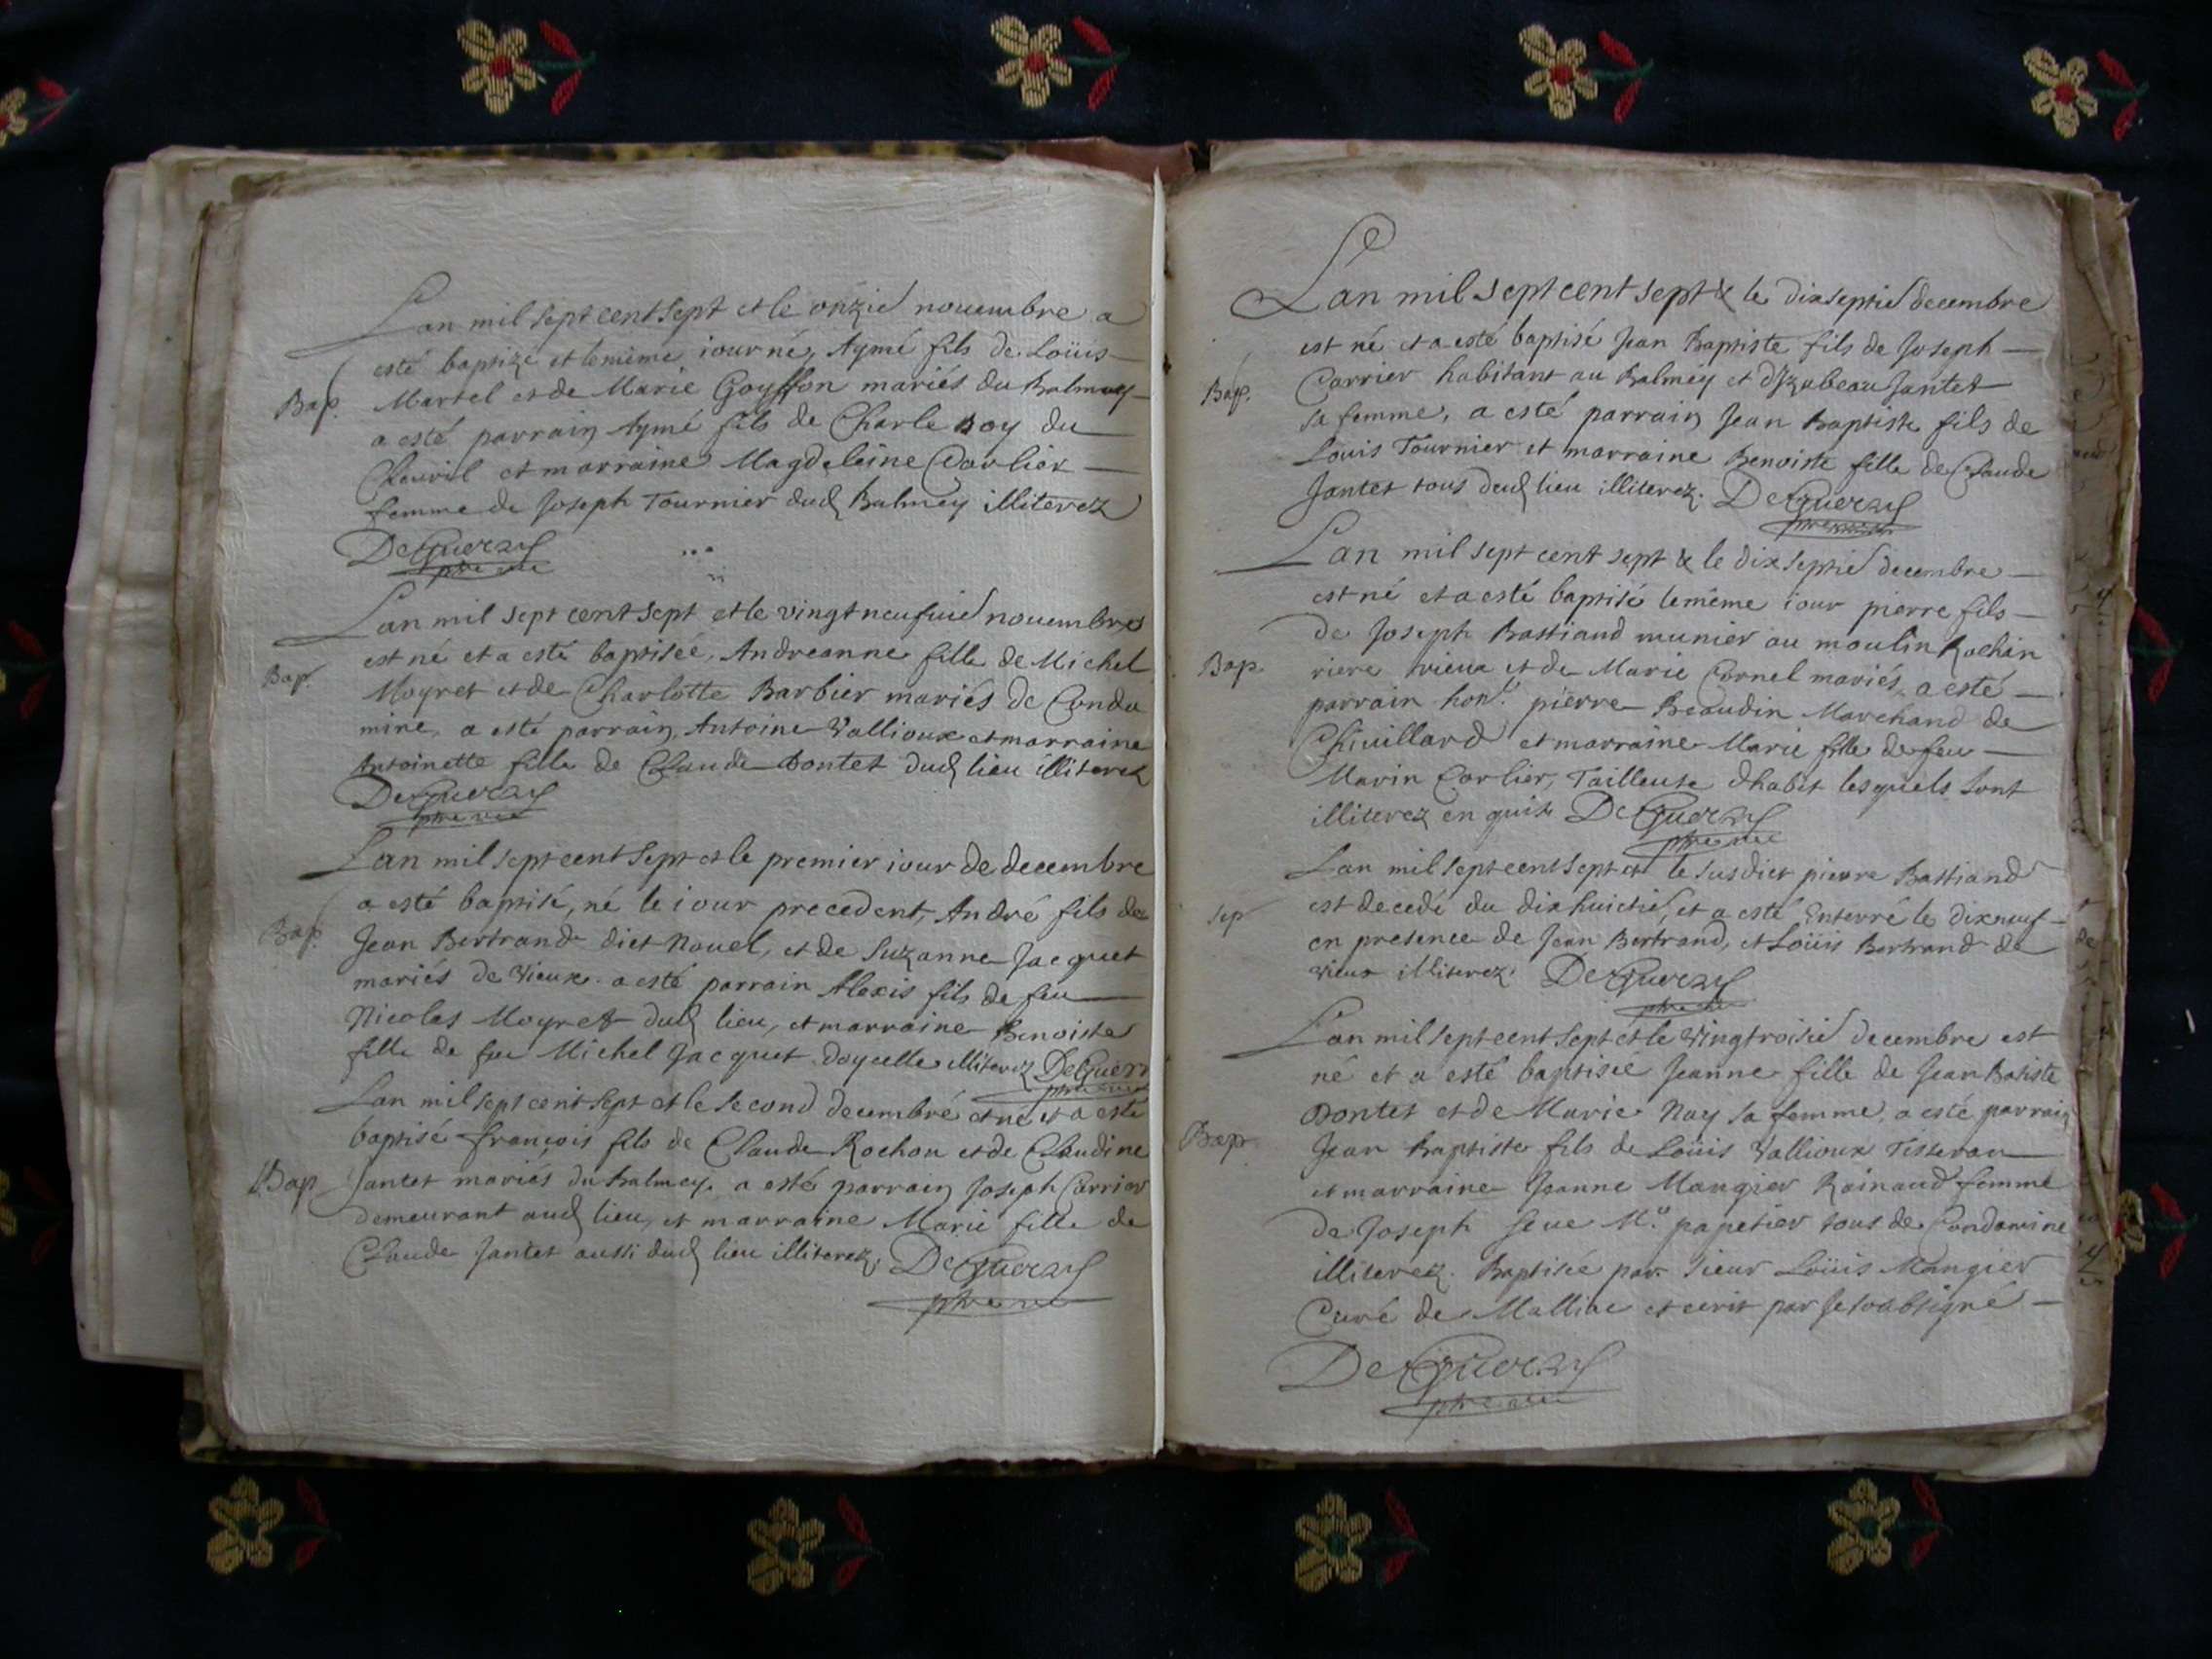 Lan mil sept cent sept et le onzie novembre a
esté baptizé et le même iour né, Aymé fils de Loüis
Bap. Martel et de Marie Goyffon mariés du Balmey
a esté parrain Aymé fils de Charle Roy du
et marraine Magdeleine Carlier
femme de Joseph Tournier dud Balmey illiterez
DeGuerry
ptre vic
Lan mil sept cent sept et le vingt neufuie nouembre
est né et a esté baptisée, Andreanne fille de Michel
Bap. Moyret et de Charlotte Barbier mariés de Conda
mine, a esté parrain, Antoine Vallioux et marraine
Antoinette fille de Claude Dontet dud lieu illiterez
DeGuerry
ptre vic
Lan mil sept cent sept et le premier iour de decembre
a esté baptisé, né le iour precedent, André fils de
Bap. Jean Bertrand dict Nouel, et de Suzanne Jacquet
mariés de Vieux. a esté parrain Alexis fils de feu
Nicolas Moyret dud lieu, et marraine Benoiste
fille de feu Michel Jacquet doycelle illiterez DeGuerry
ptre vic
Lan mil sept cent sept et le second decembre et né et a esté
baptisé françois fils de Claude Rochon et de Claudine
Bap Jantet mariés du Balmey. a esté parrain Joseph Carrier
demeurant aud lieu, et marraine Marie fille de
Claude Jantet aussi dud lieu illiterez. DeGuerry
ptre vic
Lan mil sept cent sept & le dixseptie decembre
est né et a esté baptisé Jean Baptiste fils de Joseph
Bap. Carrier habitant au Balmey et dyzabeau Jantet
sa femme, a esté parrain Jean Baptiste fils de
Louis Tournier et marraine Benoiste fille de Claude
Jantet tous dud lieu illiterez. DeGuerry
Lan mil sept cent sept & le dixseptie decembre
est né et a esté baptisé le même iour pierre fils
de Joseph Bastiand munier au moulin Rochin
Bap riere vieux et de Marie Cornel mariés, a esté
parrain hon. pierre Beaudin Marchand de
Chivillard et marraine Marie fille de feu
Marin Carlier, Tailleuse dhabit lesquels sont
illiterez enquis DeGuerry
ptre vic
Lan mil sept cent sept et le susdict pierre Bastiand
Sep est decedé du dixhuictie, et a esté Enterré le dixneuf
en presence de Jean Bertrand, et Loüis Bertrand de
vieux illiterez. DeGuerry
ptre vic
Lan mil sept cent sept et le vingtroisie decembre est
né et a esté baptisée Jeanne fille de Jean Batiste
Dontet et de Marie Nay sa femme, a esté parrain
Bap Jean Baptiste fils de Loüis Vallioux Tisseran
et marraine Jeanne Mangier Rainaud femme
de Joseph Seve Mr. papetier tous de Condamine
illiterez. Baptisée par sieur Loüis Mangier
Curé de Malliac et ecrit par je soubsigné
DeGuerry
ptre vic